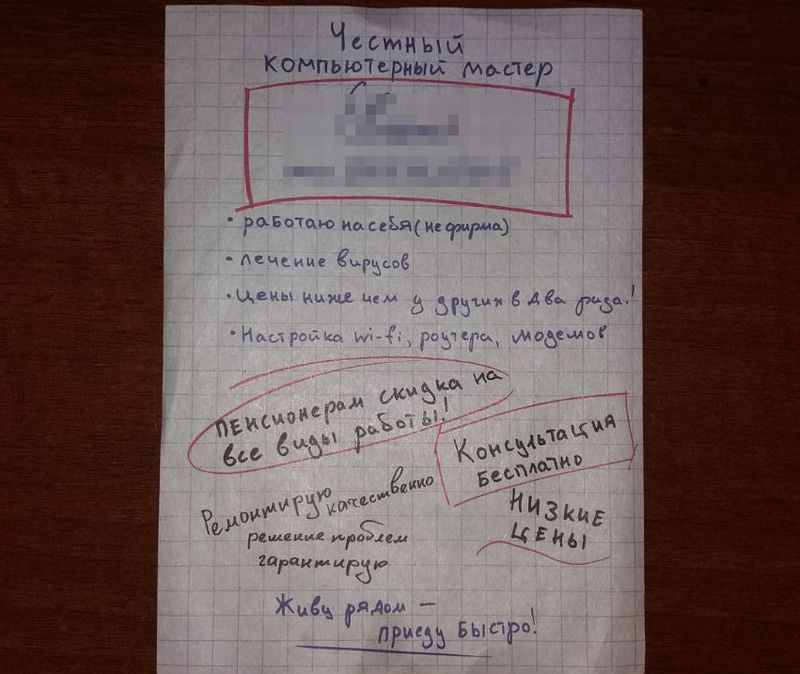 Честный
компьютерный мастер
• работаю на себя (не фирма)
• лечение вирусов
• Цены ниже чем у других в два раза!
• Настройка wi-fi, роутера, модемов
Пенсионерам скидка на
все виды работы!
Консультация
бесплатно
Ремонтирую качественно
решение проблем
гарантирую
НИЗКИЕ
ЦЕНЫ
Живу рядом –
приеду быстро!